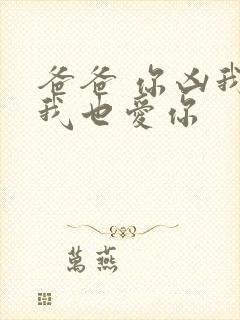 爸爸 你凶我
我也愛你
萬燕